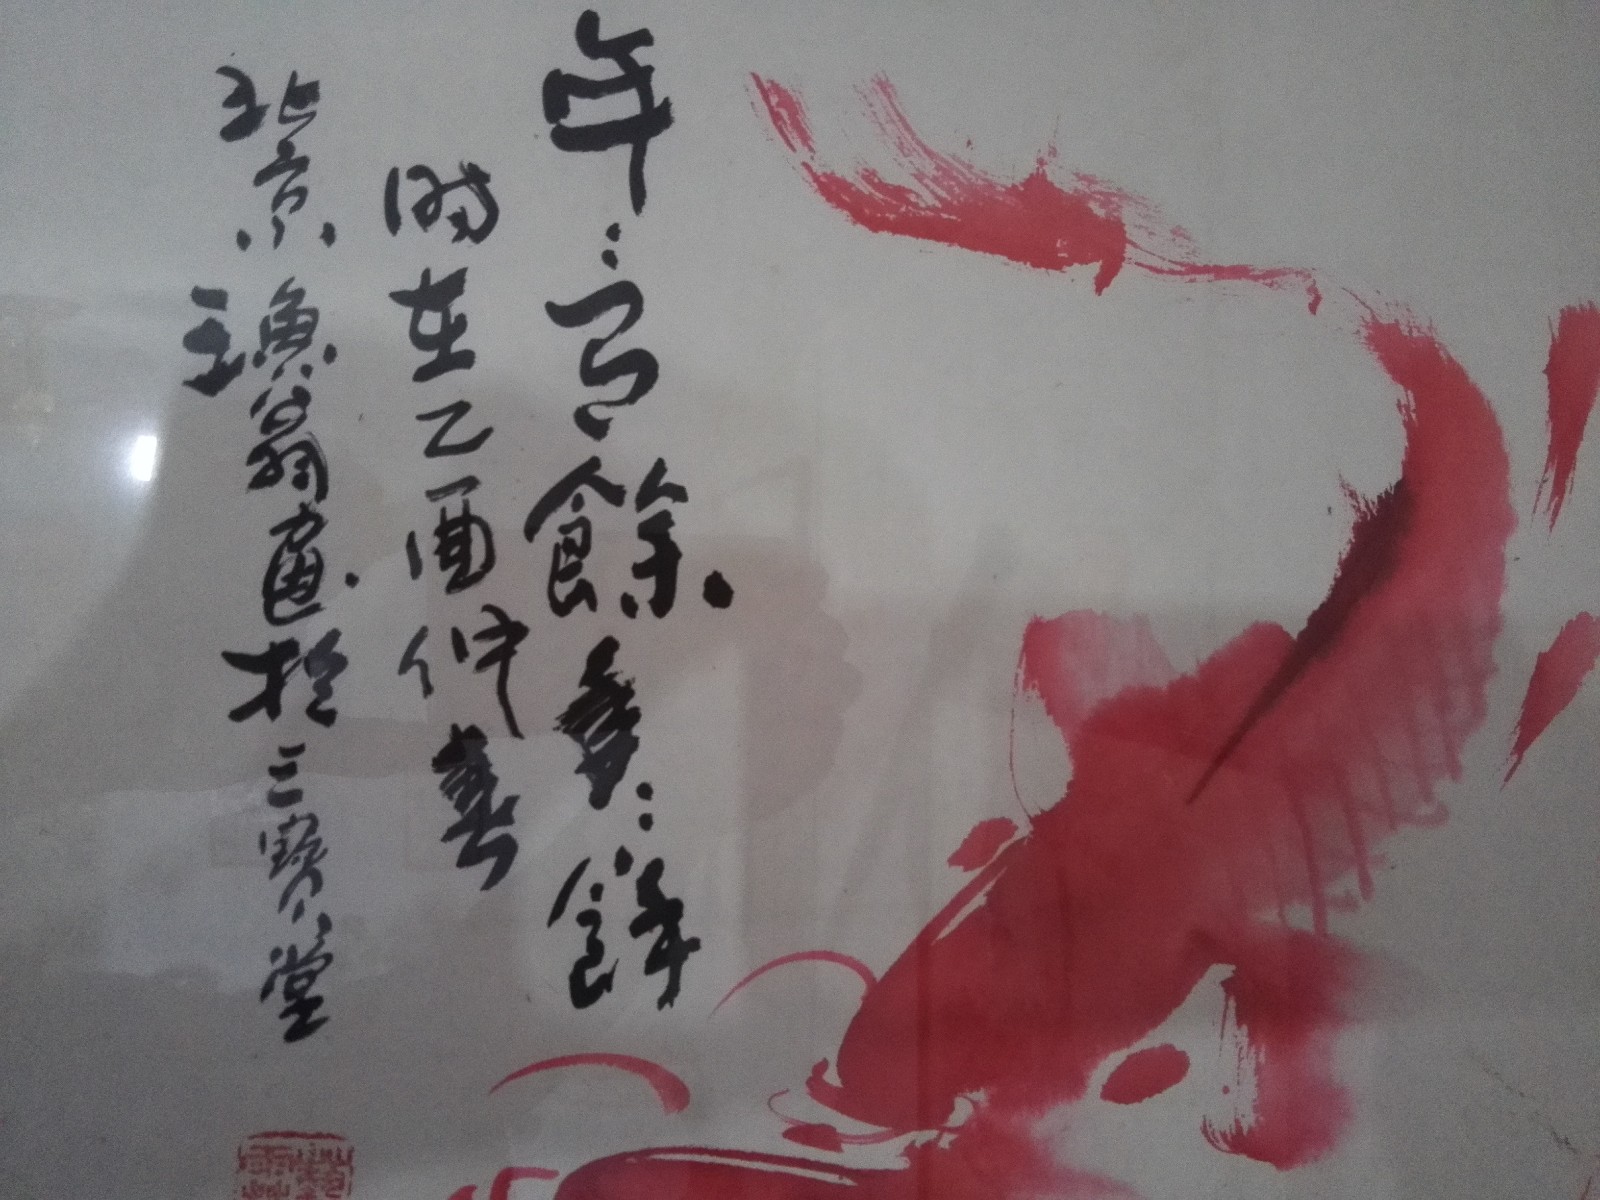 年々有餘々餘
时在乙酉仲春
北京漁翁畫於三寶堂